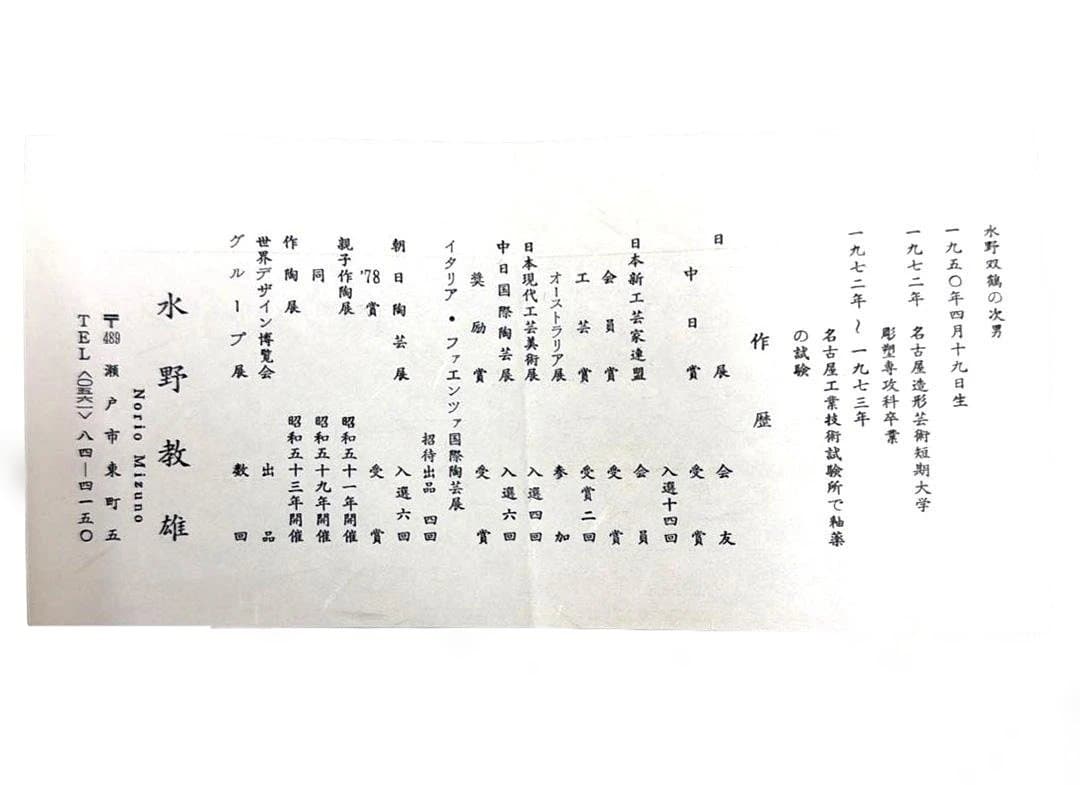 水野双鶴の次男
一九五〇年四月十九日生
一九七二年 名古屋造形芸術短期大学
彫塑専攻科卒業
一九七二年〜一九七三年
名古屋工業技術試験所で釉薬
の試験
作歴
日展 会友
中日賞 受賞
入選十四回
日本新工芸家連盟 会員
会員賞 受賞
工芸賞 受賞二回
オーストラリア展 参加
日本現代工芸美術展 入選四回
中日国際陶芸展 入選六回
奨励賞 受賞
イタリア・ファエンツァ国際陶芸展
招待出品 四回
朝日陶芸展 入選六回
'78賞 受賞
親子作陶展 昭和五十一年開催
同 昭和五十九年開催
作陶展 昭和五十三年開催
世界デザイン博覧会 出品
グループ展 数回
水野教雄
Norio Mizuno
〒489 瀬戸市東町五
TEL〈〇五六一〉八四―四一五〇